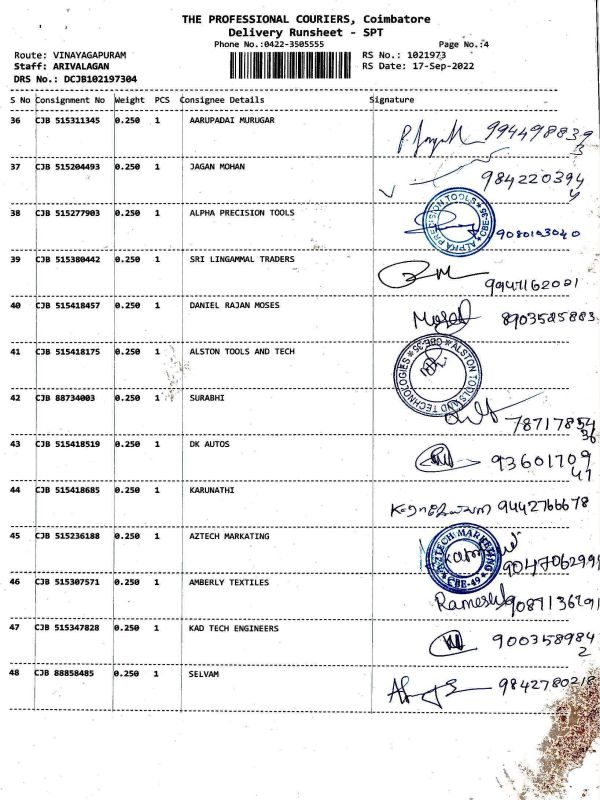 THE PROFESSIONAL COURIERS, Coimbatore
Delivery Runsheet - SPT
Phone No.:0422-3505555 Page No.:4
Route: VINAYAGAPURAM RS No.: 1021973
Staff: ARIVALAGAN RS Date: 17-Sep-2022
DRS No.: DCJB102197304
S No Consignment No Weight PCS Consignee Details Signature
36 CJB 515311345 0.250 1 AARUPADAI MURUGAR 9944988393
37 CJB 515204493 0.250 1 JAGAN MOHAN 9842203944
38 CJB 515277903 0.250 1 ALPHA PRECISION TOOLS ALPHA PRECISION TOOLS CBE-35 9080103040
39 CJB 515380442 0.250 1 SRI LINGAMMAL TRADERS 9947162001
40 CJB 515418457 0.250 1 DANIEL RAJAN MOSES Moses 8903585883
41 CJB 515418175 0.250 1 ALSTON TOOLS AND TECH ALSTON TOOLS AND TECHNOLOGIES CBE-35
42 CJB 88734003 0.250 1 SURABHI
43 CJB 515418519 0.250 1 DK AUTOS 9360170947
44 CJB 515418685 0.250 1 KARUNATHI 9442766678
45 CJB 515236188 0.250 1 AZTECH MARKATING AZTECH MARKETING CBE-49 9047062991
46 CJB 515307571 0.250 1 AMBERLY TEXTILES Ramesh 9087136791
47 CJB 515347828 0.250 1 KAD TECH ENGINEERS 9003589842
48 CJB 88858485 0.250 1 SELVAM 9842780218